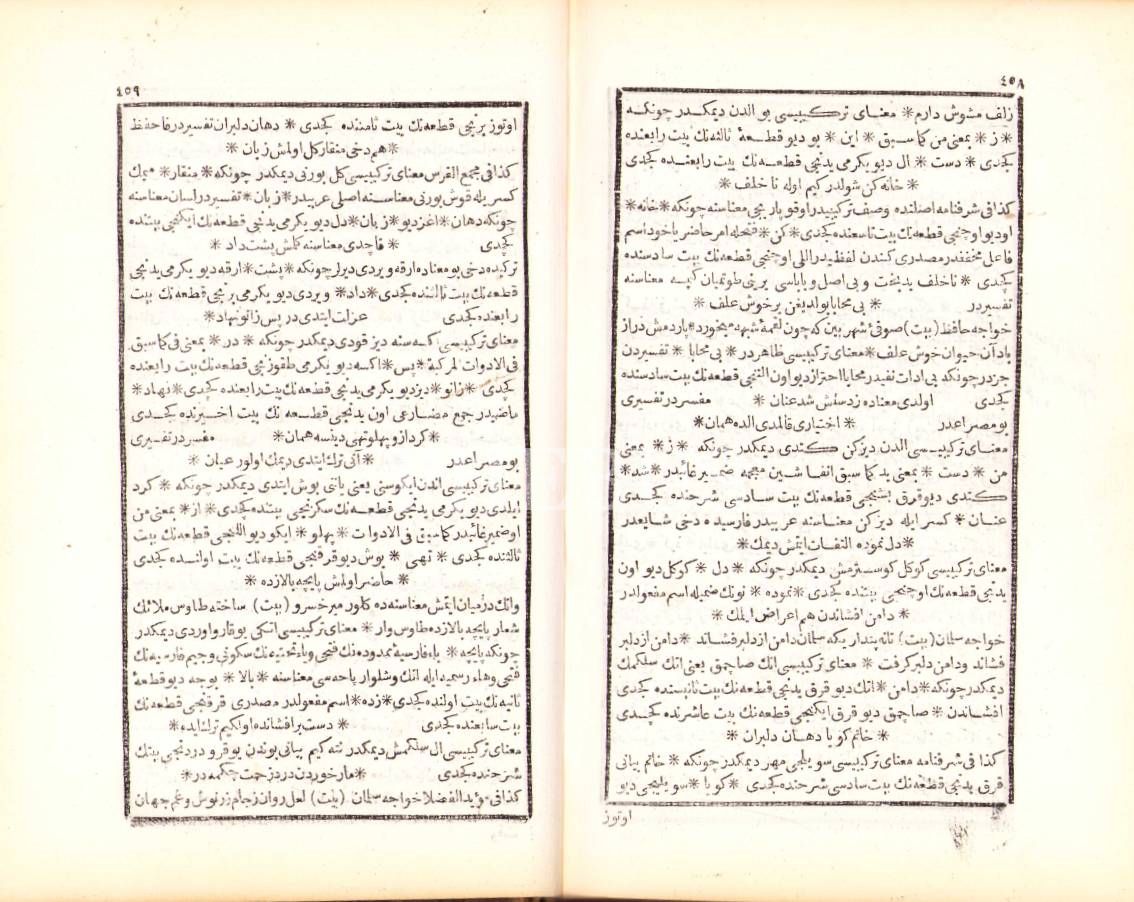 ٤٥٨
زلف مشوش دارم * معنای ترکیبیسی بو الدن دیمکدر چونکه
* ز * بمعنی من کما سبق * این * بو دیو قطعهٔ ثالثه نك بیت رابعنده
کچدی * دست * ال دیو یکرمی یدنجی قطعه نك بیت رابعنده کچدی
* خانه کن شولدر کیم اوله ناخلف *
کذا فی شرفنامه اصلنده وصف ترکیبیدر اوقو یاریجی معناسنه چونکه * خانه *
او دیو اوچنجی قطعه نك بیت تاسعنده کچدی * کن * فتحله امر حاضر یاخود اسم
فاعل مخففدر مصدری کندن لفظیدر اللی اوچنجی قطعه نك بیت سادسنده
کچدی * ناخلف یدبخت و بی اصل و باباسی یرینی طوتمیان کیمسه معناسنه
تفسیردر * بی محابا بولدیغن یرخوش علف *
خواجه حافظ (بیت) صوفئ شهر بین که چون لقمهٔ شبهه میخورد * پاردمش دراز
باد آن حیوان خوش علف * معنای ترکیبیسی ظاهردر * بی محابا * تفسیردن
جزدر چونکه بی ادات نفیدر محابا احتراز دیو اون التنجی قطعه نك بیت سادسنده
کچدی اولدی معناده زدستش شد عنان * مفسردر تفسیری
بو مصراعدر * اختیاری قالمدی الده همان *
معنای ترکیبیسی الدن دیزکن کتدی دیمکدر چونکه * ز * بمعنی
من * دست * بمعنی ید کما سبق انفا شین معجمه ضمیر غائبدر * شد *
کتدی دیو قرق بشنجی قطعه نك بیت سادسی شرحنده کچدی
عنان * کسر ایله دیزکن معناسنه عربیدر فارسیده دخی شایعدر
* دل نموده التفات ایتمش دیمك *
معنای ترکیبیسی کوکل کوسترمش دیمکدر چونکه * دل * کوکل دیو اون
یدنجی قطعه نك اوچنجی بیتنده کچدی * نموده * نونك ضمیله اسم مفعولدر
* دامن افشاندن هم اعراض ایلمك *
خواجه سلمان (بیت) تانه پنداری که سلمان دامن از دلبر فشاند * دامن از دلبر
فشاند ودامن دلبر کرفت * معنای ترکیبیسی اتك صاچمق یعنی اتك سلکمك
دیمکدر چونکه * دامن * اتك دیو قرق یدنجی قطعه نك بیت ثانیسنده کچدی
افشاندن * صاچمق دیو قرق ایکنجی قطعه نك بیت عاشرنده کچدی
* خاتم کویا دهان دلبران *
کذا فی شرفنامه معنای ترکیبیسی سویلیجی مهر دیمکدر چونکه * خاتم بیانی
قرق یدنجی قطعه نك بیت سادسی شرحنده کچدی * کویا * سویلیجی دیو
اوتوز
٤٥٩
اوتوز برنجی قطعه نك بیت ثامننده کچدی * دهان دلبران تفسیردر فاحفظ
* هم دخی منقار کل اولمش زبان *
کذا فی مجمع الفرس معنای ترکیبیسی کل بورنی دیمکدر چونکه * منقار * میمك
کسریله قوش بورنی معناسنه اصلی عربیدر * زبان * تفسیردر لسان معناسنه
چونکه دهان * اغز دیو * زبان * دل دیو یکرمی یدنجی قطعه نك ایکنجی بیتنده
کچدی * قاچدی معناسنه کلمش پشت داد *
ترکیده دخی بو معناده ارقه ویردی دیرلر چونکه * پشت * ارقه دیو یکرمی یدنجی
قطعه نك بیت ثالثنده کچدی * داد * ویردی دیو یکرمی برنجی قطعه نك بیت
رابعنده کچدی عزلت ایتدی در پس زانو نهاد *
معنای ترکیبیسی اکسه سنه دیز قودی دیمکدر چونکه * در * بمعنی فی کما سبق
فی الادوات المرکبة * پس * اکسه دیو یکرمی طقوزنجی قطعه نك بیت رابعنده
کچدی * زانو * دیز دیو یکرمی یدنجی قطعه نك بیت رابعنده کچدی * نهاد *
ماضیدر جمع مضارعی اون یدنجی قطعه نك بیت اخیرنده کچدی
* کرد از و پهلو تهی دینسه همان * مفسردر تفسیری
بو مصراعدر * آنی ترك ایتدی دیمك اولور عیان *
معنای ترکیبیسی اندن ایکوسنی یعنی یاننی بوش ایتدی دیمکدر چونکه * کرد
ایلدی دیو یکرمی یدنجی قطعه نك سکزنجی بیتنده کچدی * از * بمعنی من
او ضمیر غائبدر کما سبق فی الادوات * پهلو * ایکو دیو اللنجی قطعه نك بیت
ثالثنده کچدی * تهی * بوش دیو قرقنجی قطعه نك بیت اولنده کچدی
* حاضر اولمش پایچه بالا زده *
وانك درمیان ایتمش معناسنه ده کلور میر خسرو (بیت) ساخته طاوس ملائك
شعار پایچه بالا زده طاوس وار * معنای ترکیبیسی اتکی یوقارو اوردی دیمکدر
چونکه پایچه * باء فارسیهٔ ممدوده نك فتحی ویاء تحتیه نك سکونی وجیم فارسیه نك
فتحی وهاء رسمیه ایله اتك وشلوار پاچه سی معناسنه * بالا * یوجه دیو قطعهٔ
ثانیه نك بیت اولنده کچدی * زده * اسم مفعولدر مصدری قرقنجی قطعه نك
بیت سابعنده کچدی * دست بر افشانده او کیم ترك ایده *
معنای ترکیبیسی ال سلکمش دیمکدر نته کیم بیانی بوندن یوقرو دردنجی بیتك
شرحنده کچدی * مار خوردن درد زحمت چکمه در *
کذا فی مؤید الفضلا خواجه سلمان (بیت) لعل روان زجام زر نوش وغم جهان